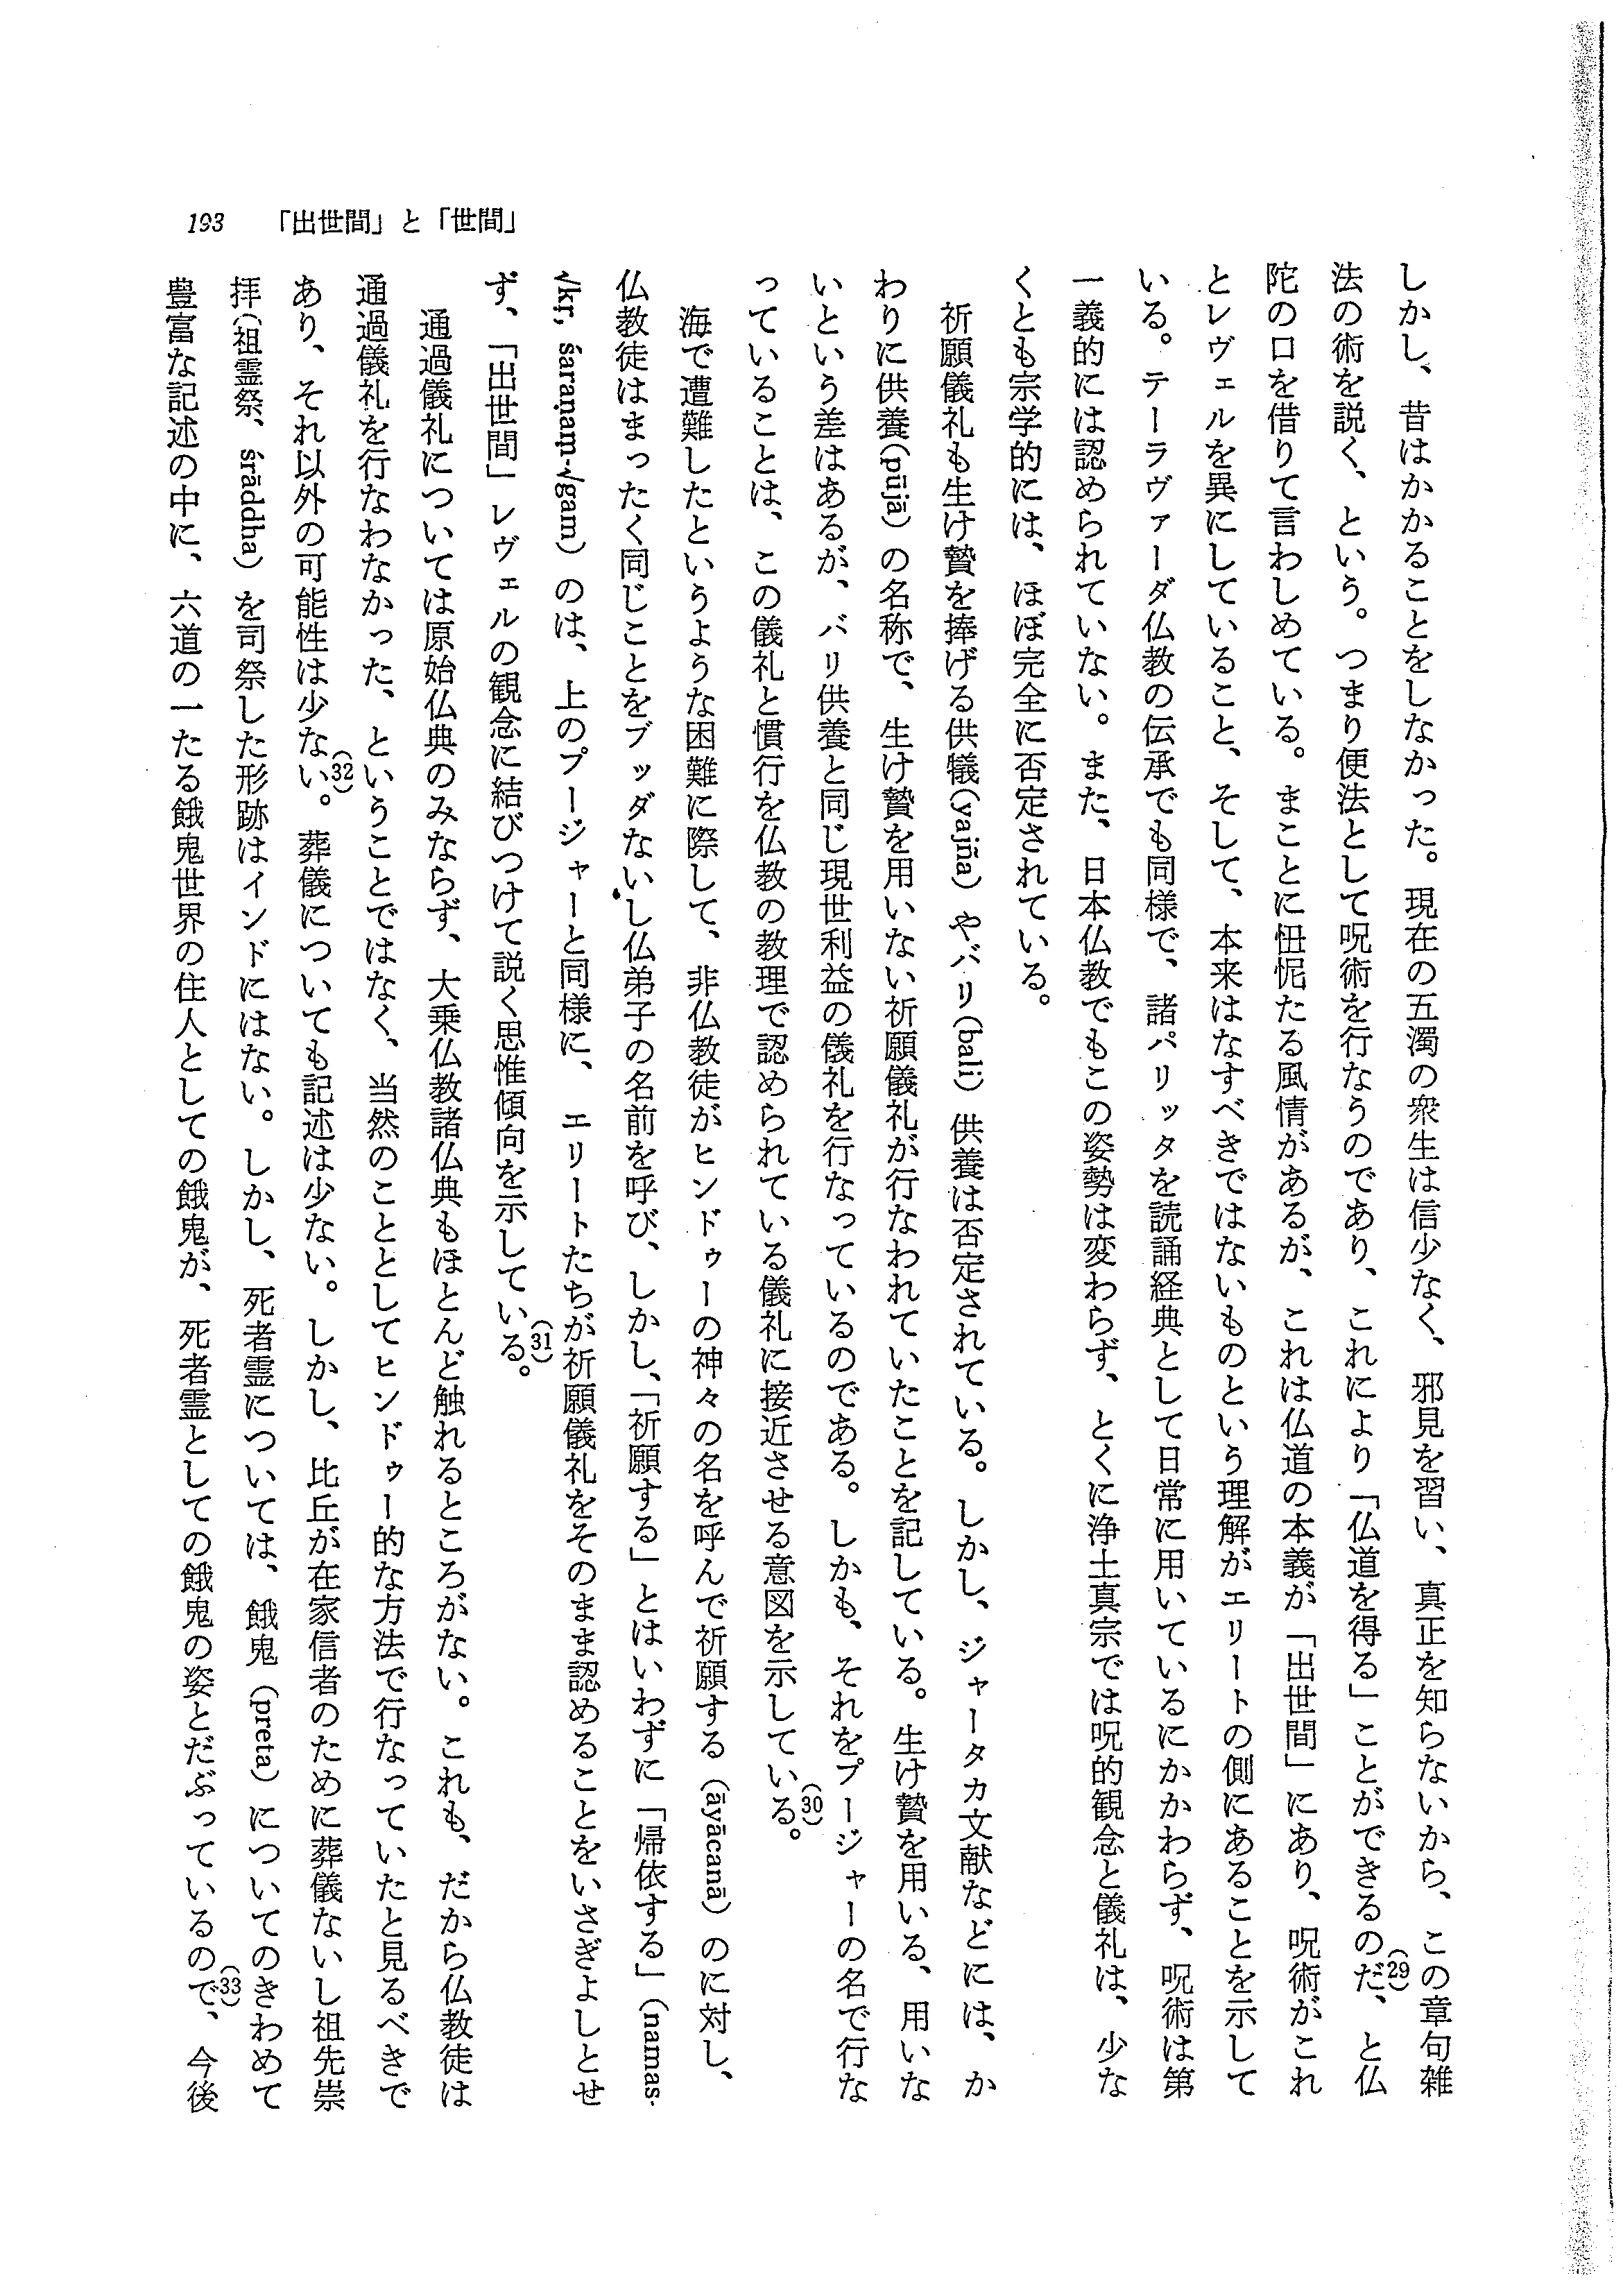 193　「出世間」と「世間」
しかし、昔はかかることをしなかった。現在の五濁の衆生は信少なく、邪見を習い、真正を知らないから、この章句雑
法の術を説く、という。つまり便法として呪術を行なうのであり、これにより「仏道を得る」ことができるのだ(29)、と仏
陀の口を借りて言わしめている。まことに忸怩たる風情があるが、これは仏道の本義が「出世間」にあり、呪術がこれ
とレヴェルを異にしていること、そして、本来はなすべきではないものという理解がエリートの側にあることを示して
いる。テーラヴァーダ仏教の伝承でも同様で、諸パリッタを読誦経典として日常に用いているにかかわらず、呪術は第
一義的には認められていない。また、日本仏教でもこの姿勢は変わらず、とくに浄土真宗では呪的観念と儀礼は、少な
くとも宗学的には、ほぼ完全に否定されている。
祈願儀礼も生け贄を捧げる供犠(yajña)やバリ(bali)供養は否定されている。しかし、ジャータカ文献などには、か
わりに供養(pūjā)の名称で、生け贄を用いない祈願儀礼が行なわれていたことを記している。生け贄を用いる、用いな
いという差はあるが、バリ供養と同じ現世利益の儀礼を行なっているのである。しかも、それをプージャーの名で行な
っていることは、この儀礼と慣行を仏教の教理で認められている儀礼に接近させる意図を示している(30)。
海で遭難したというような困難に際して、非仏教徒がヒンドゥーの神々の名を呼んで祈願する(āyācanā)のに対し、
仏教徒はまったく同じことをブッダないし仏弟子の名前を呼び、しかし、「祈願する」とはいわずに「帰依する」(namas-
√kṛ, śaraṇaṃ-√gam)のは、上のプージャーと同様に、エリートたちが祈願儀礼をそのまま認めることをいさぎよしとせ
ず、「出世間」レヴェルの観念に結びつけて説く思惟傾向を示している(31)。
通過儀礼については原始仏典のみならず、大乗仏教諸仏典もほとんど触れるところがない。これも、だから仏教徒は
通過儀礼を行なわなかった、ということではなく、当然のこととしてヒンドゥー的な方法で行なっていたと見るべきで
あり、それ以外の可能性は少ない(32)。葬儀についても記述は少ない。しかし、比丘が在家信者のために葬儀ないし祖先崇
拝(祖霊祭、śrāddha)を司祭した形跡はインドにはない。しかし、死者霊については、餓鬼(preta)についてのきわめて
豊富な記述の中に、六道の一たる餓鬼世界の住人としての餓鬼が、死者霊としての餓鬼の姿とだぶっているので(33)、今後